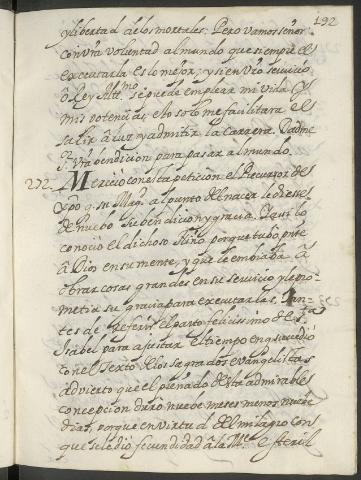 192
y libertad de los mortales. Pero vamos señor
con vrã voluntad al mundo que siempre el
executarla es lo mejor; y si en vrõ servicio
ô Rey Altt.mo se puede emplear mi vida y
mis potencias, esto solo me facilitara el
salir â luz y admitir la carrera. Dadme
S.r vrã bendicion para pasar al mundo.
272. Mereció con esta peticion el Precursor de
Xpõ q. su Mag.d al punto del nacer le diese
de nuebo su bendicion y gracia. Y asi lo
conoció el dichoso Niño, porque tubo pnte
â Dios en su mente, y que le embiaba â
obrar cosas grandes en su servicio y le pro-
metia su gracia para executarlas. An-
tes de referir el parto felicissimo de S.ta
Isabel para ajustar el tiempo en q sucedio
con el Texto de los sagrados evangelistas
advierto que el preñado de esta admirable
concepcion duró nuebe meses menos nuebe
dias, porque en virtud del milagro con
que se le dio fecundidad â la M.e esteril